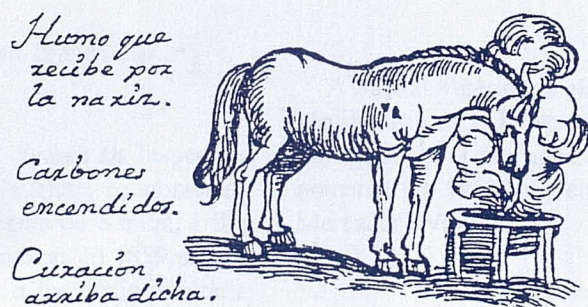 Humo que
recibe por
la nariz.
Carbones
encendidos.
Curación
arriba dicha.